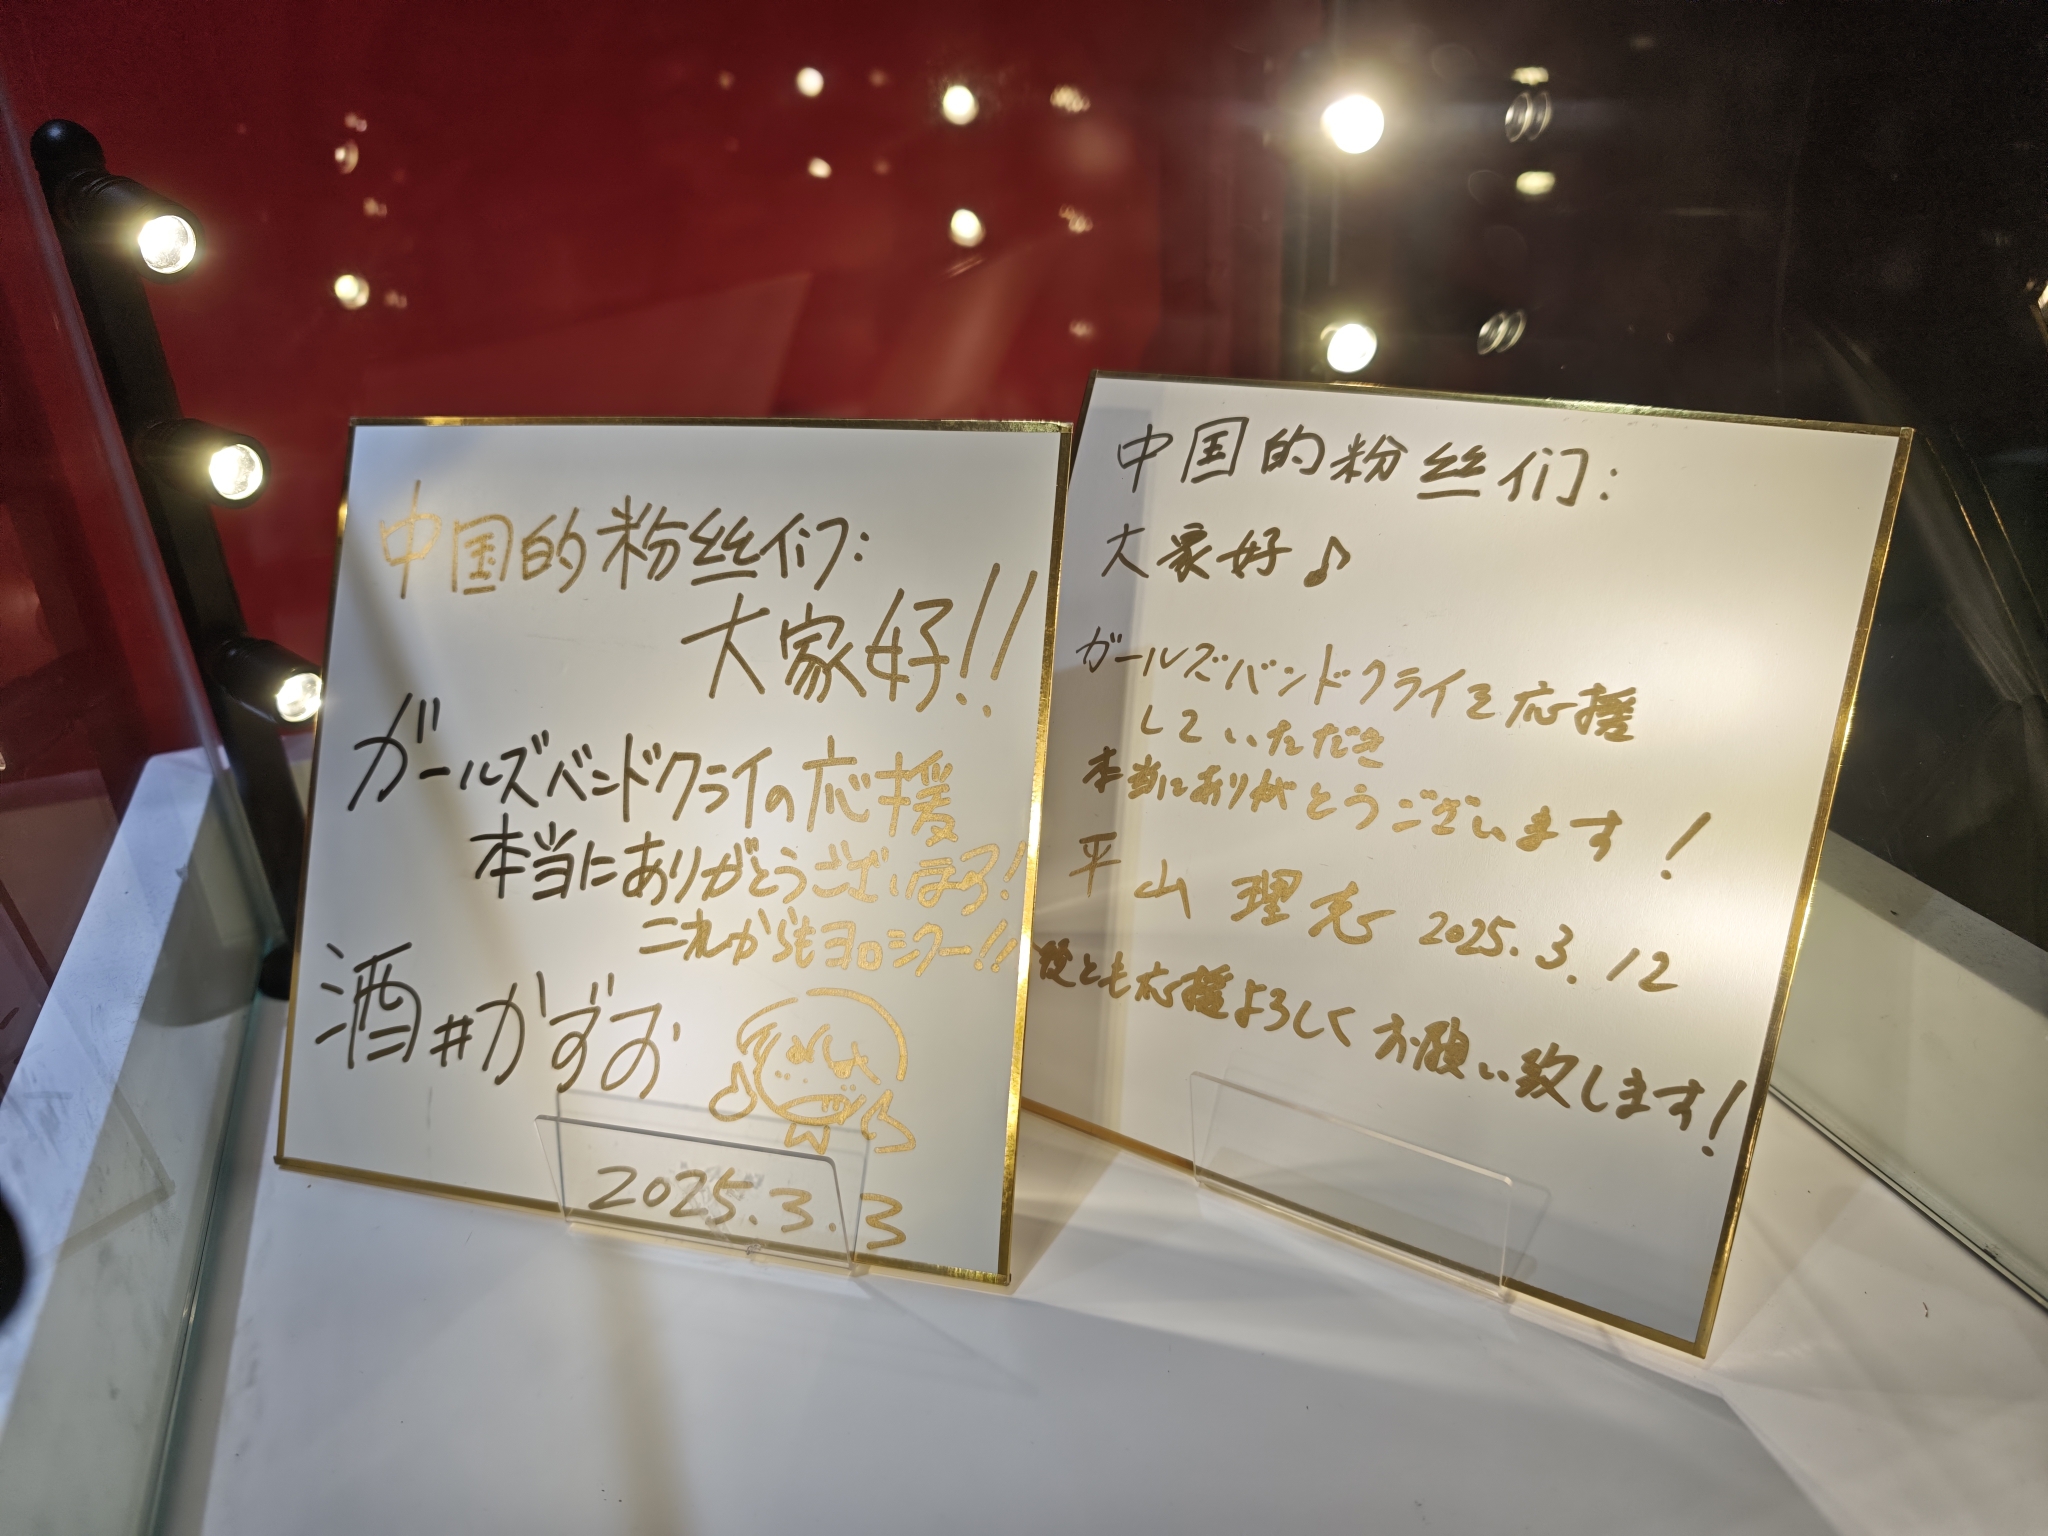 中国的粉丝们:
大家好!!
ガールズバンドクライの応援
本当にありがとうございまーす!
これからもヨロシクー!!
酒井かずお
2025.3.3
中国的粉丝们:
大家好♪
ガールズバンドクライを応援
していただき
本当にありがとうございます!
平山理志 2025.3.12
とも応援よろしくお願い致します!